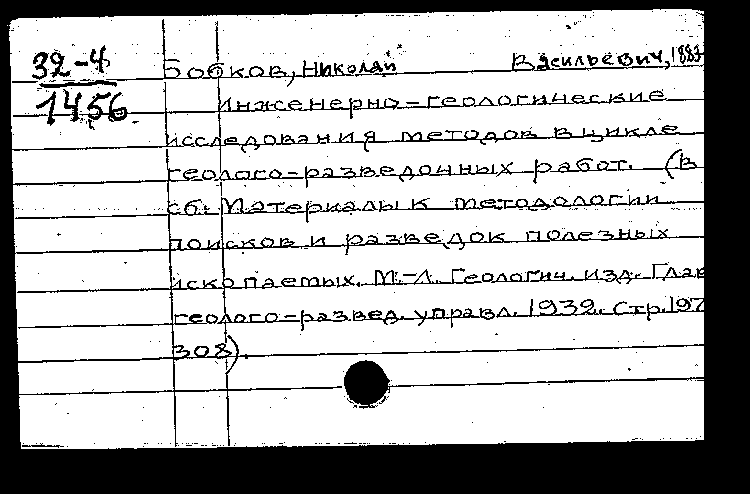 32-4
1456
Бобков, Николай Васильевич, 1883-
Инженерно-геологические
исследования методов в цикле
геолого-разведочных работ. (В
сб: Материалы к методологии
поисков и разведок полезных
ископаемых. М.-Л. Геологич. изд. Глав
геолого-развед. управл. 1932. Стр. 197
308).